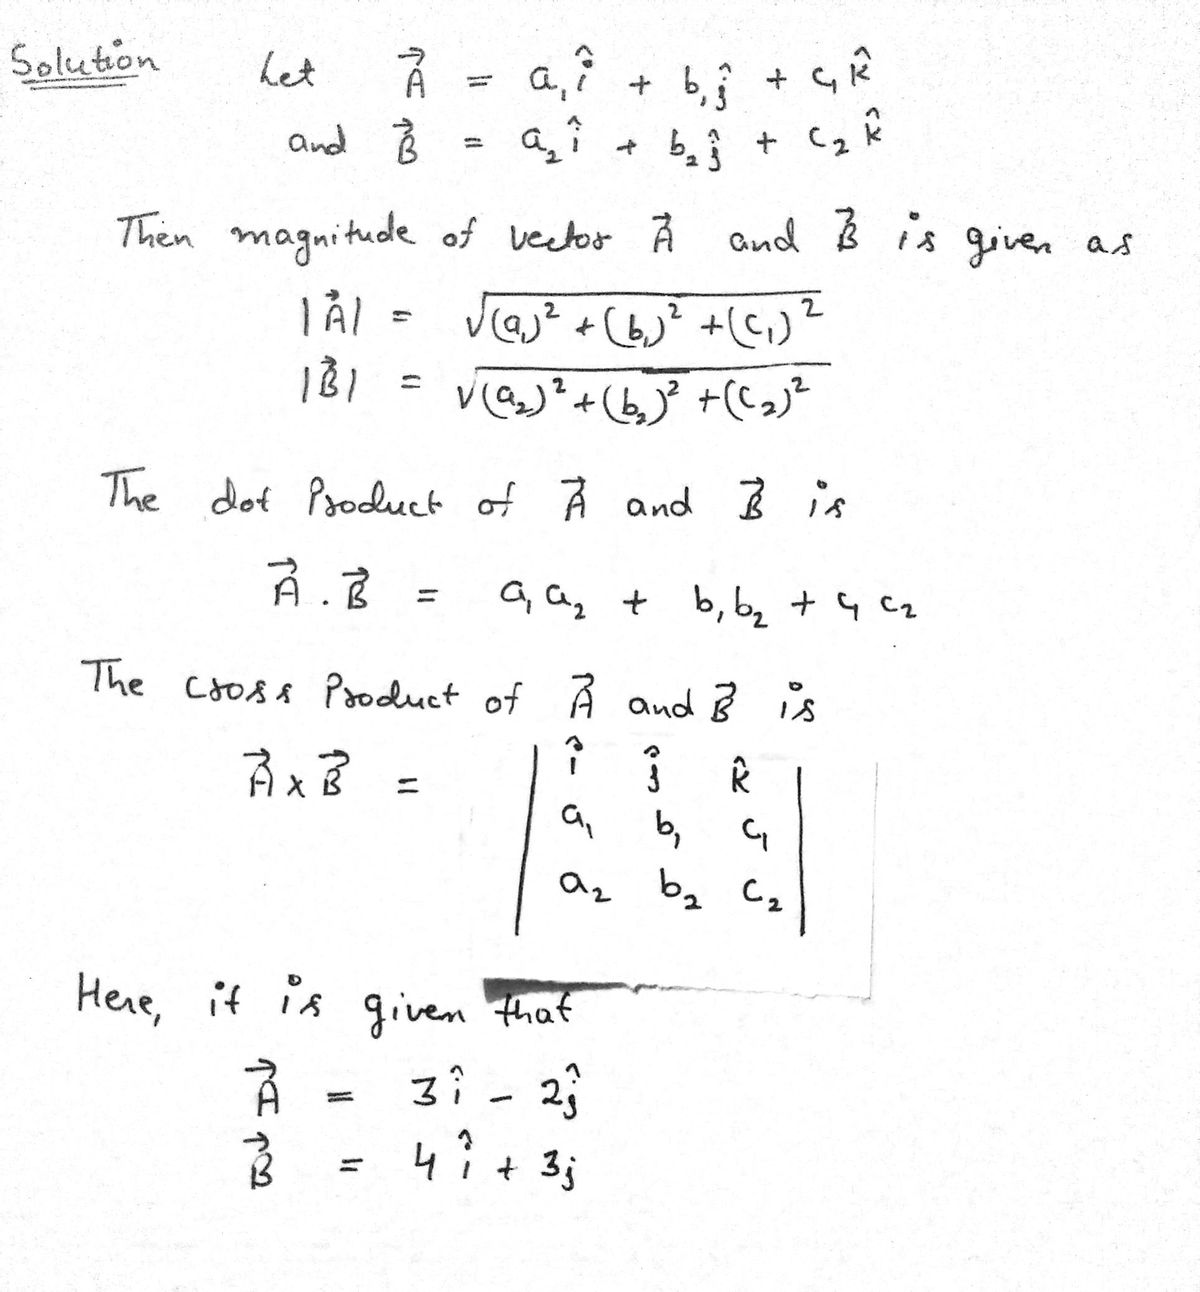 Solution Let A⃗ = a₁î + b₁ĵ + c₁k̂
and B⃗ = a₂î + b₂ĵ + c₂k̂
Then magnitude of vector A⃗ and B⃗ is given as
|A⃗| = √(a₁)² + (b₁)² + (c₁)²
|B⃗| = √(a₂)² + (b₂)² + (c₂)²
The dot Product of A⃗ and B⃗ is
A⃗ . B⃗ = a₁a₂ + b₁b₂ + c₁c₂
The cross Product of A⃗ and B⃗ is
A⃗ × B⃗ = | î ĵ k̂
a₁ b₁ c₁
a₂ b₂ c₂ |
Here, it is given that
A⃗ = 3î - 2ĵ
B⃗ = 4î + 3j